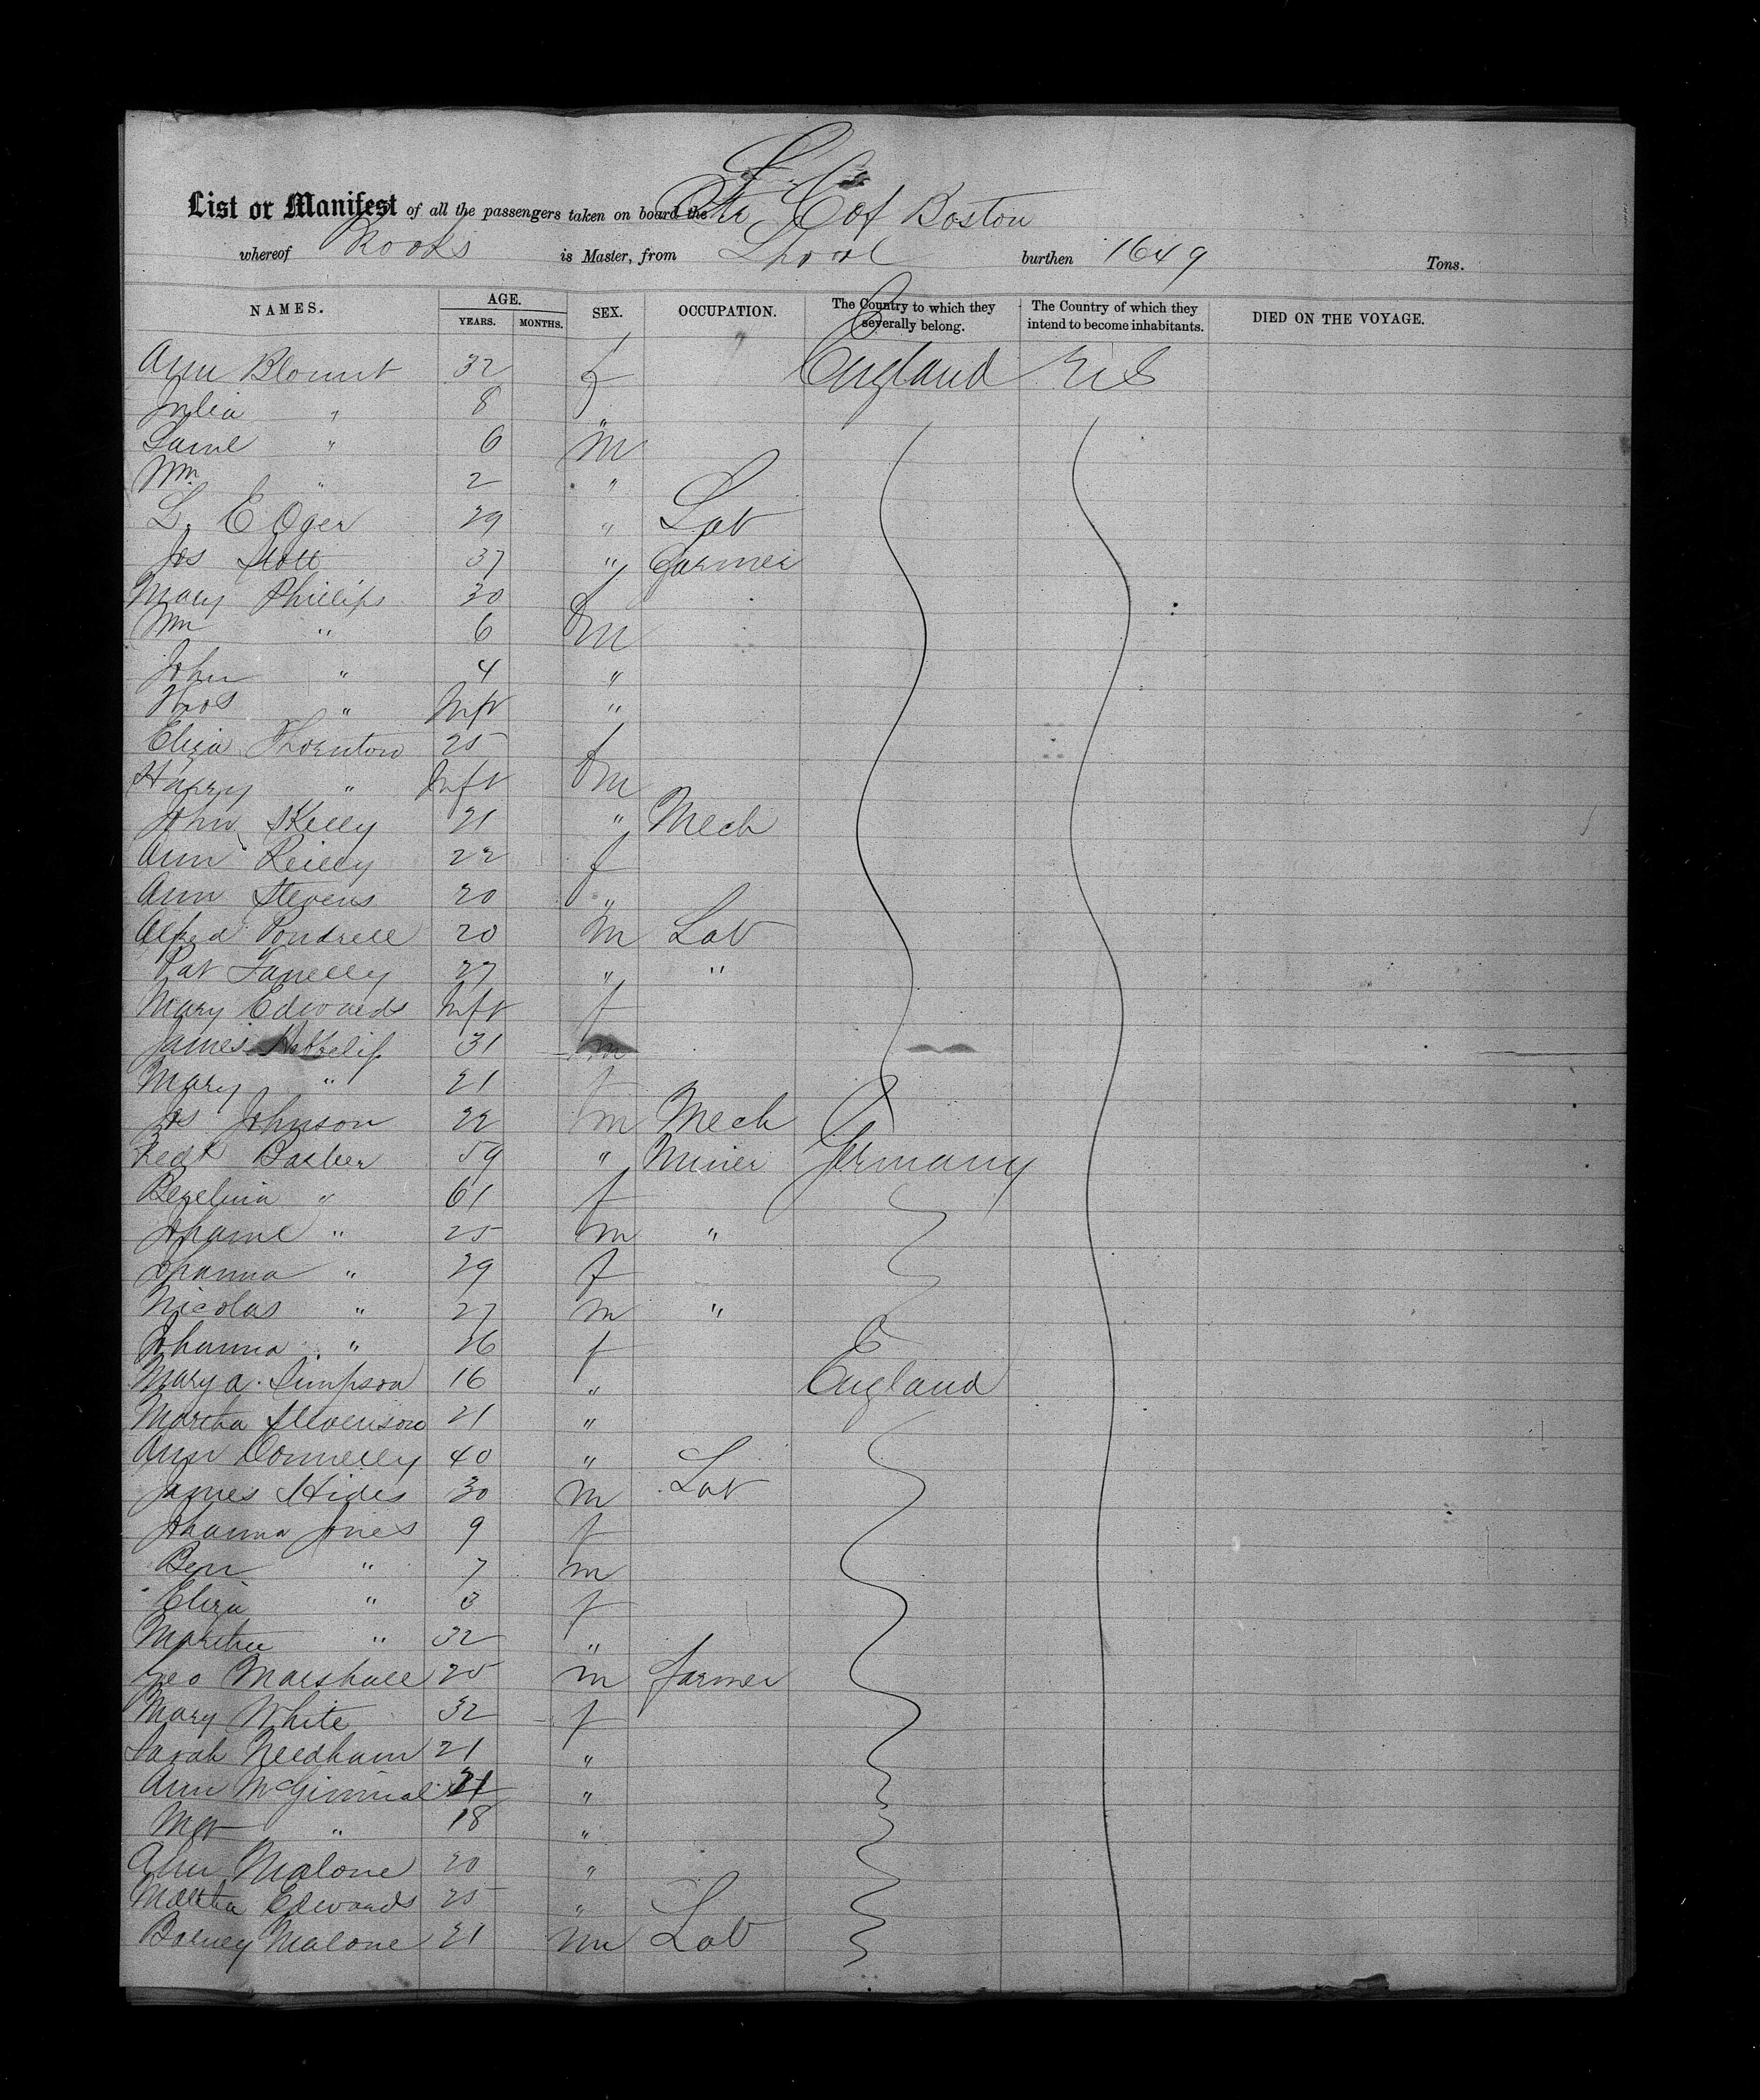 List or Manifest of all the passengers taken on board the Str C of Boston
whereof Rooks is Master, from Lpool burthen 1649 Tons.
NAMES. AGE. YEARS. MONTHS. SEX. OCCUPATION. The Country to which they severally belong. The Country of which they intend to become inhabitants. DIED ON THE VOYAGE.
Ann Blount 32 f England U S
Julia " 8 "
Saml " 6 m
Wm " 2 "
L. E Oger 29 " Lab
Jos Stott 37 " Farmer
Mary Phillips 30 f
Wm " 6 m
John " 4 "
Thos " Inft "
Eliza Thornton 25 f
Harry " Inft m
John Skelly 21 " Mech
Ann Reilly 22 f
Ann Stevens 20 "
Alfred Pondrell 20 m Lab
Pat Fanelly 27 " "
Mary Edwards Inft f
James 31 m
Mary " 21 f
Jos Johnson 22 m Mech
Fredk Barber 59 " Miner Germany
" 61 f
" 25 m "
Johanna " 29 f
Nicolas " 27 m "
Johanna " 26 f
Mary A. Simpson 16 " England
Martha Stevenson 21 "
Ann Connelly 40 "
James Hides 30 m Lab
Johanna Jones 9 f
Ben " 7 m
Eliza " 3 f
Martha " 32 "
Geo Marshall 25 m farmer
Mary White 32 f
Sarah Needham 21 "
Ann 21 "
Mgt " 18 "
Ann Malone 20 "
Martha Edwards 25 "
Barney Malone 21 m Lab